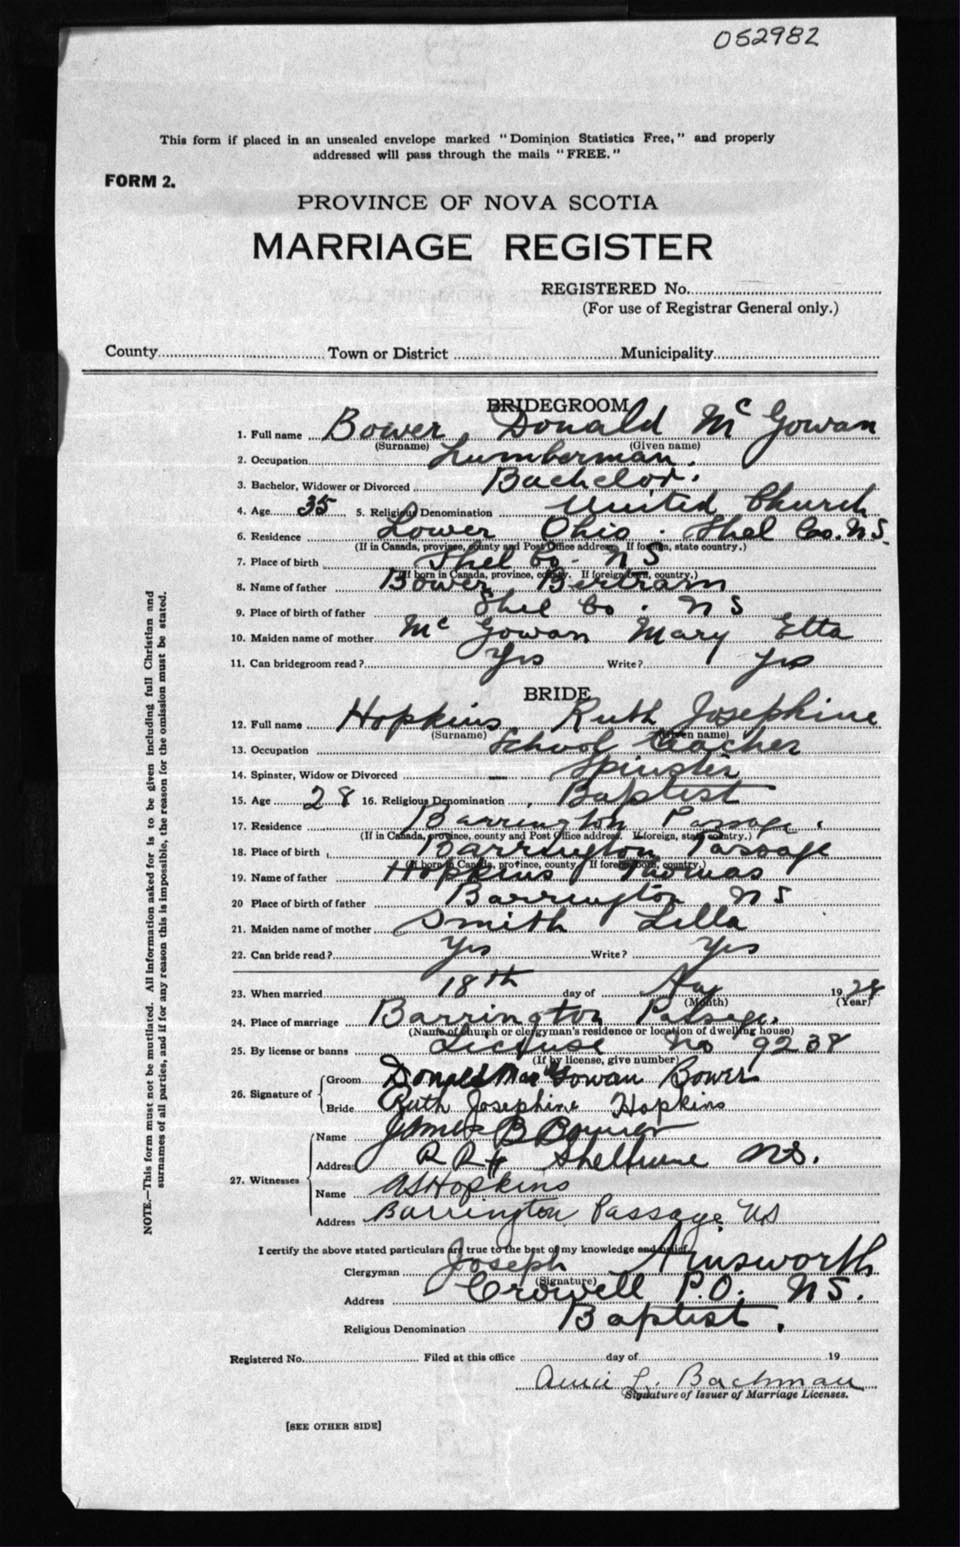 052982
This form if placed in an unsealed envelope marked "Dominion Statistics Free," and properly
addressed will pass through the mails "FREE."
FORM 2.
PROVINCE OF NOVA SCOTIA
MARRIAGE REGISTER
REGISTERED No.
(For use of Registrar General only.)
County Town or District Municipality
BRIDEGROOM
1. Full name Bower Donald McGowan
(Surname) (Given name)
2. Occupation Lumberman.
3. Bachelor, Widower or Divorced Bachelor.
4. Age 35 5. Religious Denomination United Church
6. Residence Lower Ohio. Shel Co. N.S.
(If in Canada, province, county and Post Office address. If foreign, state country.)
7. Place of birth Shel Co. N S
(If born in Canada, province, county. If foreign born, country.)
8. Name of father Bower Bartram
9. Place of birth of father Shel Co. N S
10. Maiden name of mother McGowan Mary Etta
11. Can bridegroom read? Yes Write? yes
BRIDE
12. Full name Hopkins Ruth Josephine
(Surname) (Given name)
13. Occupation School teacher
14. Spinster, Widow or Divorced Spinster
15. Age 28 16. Religious Denomination Baptist
17. Residence Barrington Passage.
(If in Canada, province, county and Post Office address. If foreign, state country.)
18. Place of birth Barrington Passage
(If born in Canada, province, county. If foreign born, country.)
19. Name of father Hopkins Thomas
20 Place of birth of father Barrington N S
21. Maiden name of mother Smith Lilla
22. Can bride read? Yes Write? Yes
23. When married 18th day of 1928
(Month) (Year)
24. Place of marriage Barrington Passage.
(Name of church or clergyman's residence or location of dwelling house)
25. By license or banns License No 9238
(If by license, give number)
26. Signature of Groom Donald MacGowan Bower
Bride Ruth Josephine Hopkins
27. Witnesses Name James B Bower
Address R R Shelburne N.S.
Name A S Hopkins
Address Barrington Passage NS
I certify the above stated particulars are true to the best of my knowledge and belief.
Clergyman Joseph Ainsworth
(Signature)
Address Crowell P.O. N.S.
Religious Denomination Baptist.
Registered No. Filed at this office day of 19
Annie L. Bachman
Signature of Issuer of Marriage Licenses.
[SEE OTHER SIDE]
NOTE.—This form must not be mutilated. All information asked for is to be given including full Christian and
surnames of all parties, and if for any reason this is impossible, the reason for the omission must be stated.